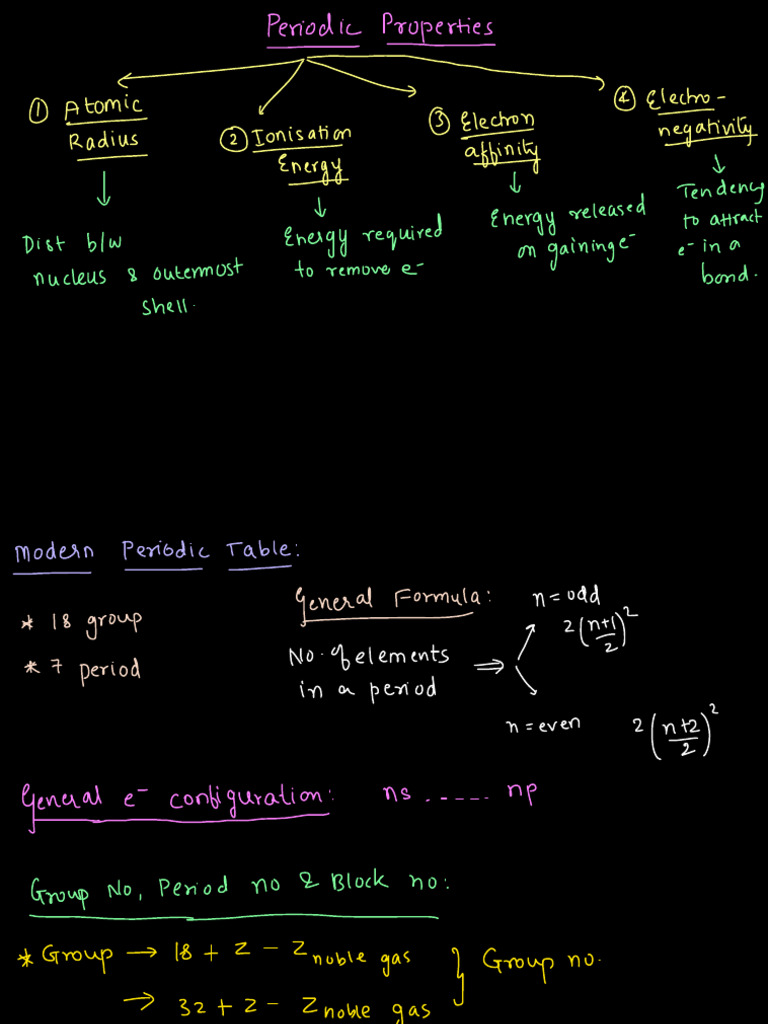 Periodic Properties
① Atomic Radius
Dist b/w
nucleus & outermost
shell.
② Ionisation
Energy
Energy required
to remove e⁻
③ Electron
affinity
Energy released
on gaining e⁻
④ Electro-
negativity
Tendency
to attract
e⁻ in a
bond.
Modern Periodic Table:
* 18 group
* 7 period
General Formula:
No. of elements
in a period
⇒
n = odd
2(n+1/2)²
n = even 2(n+2/2)²
General e⁻ configuration: ns ...---... np
Group No, Period no & Block no:
* Group → 18 + Z - Z noble gas } Group no.
→ 32 + Z - Z noble gas